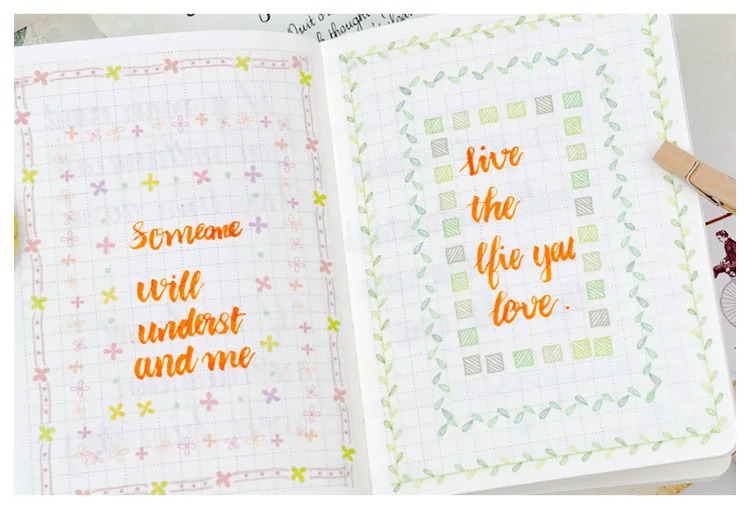 Quit o
Someone
will
underst
and me
live
the
lfie you
love.